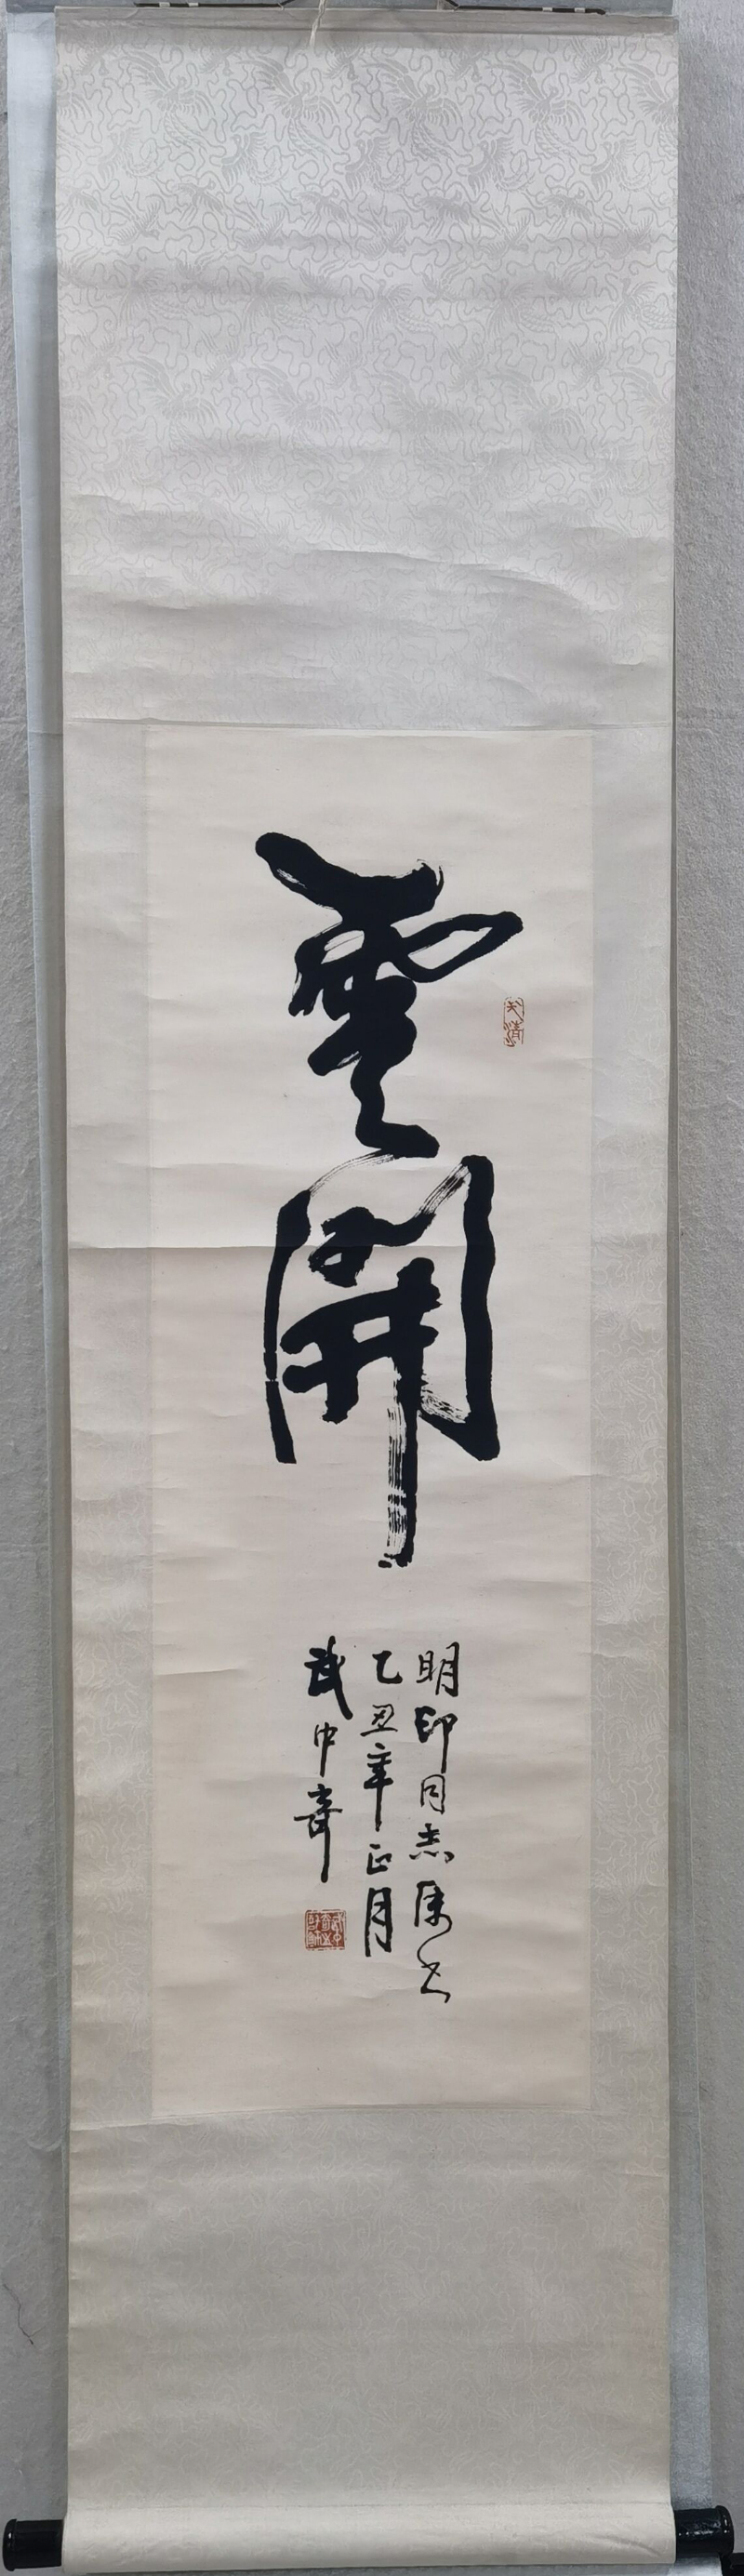 雲開
明印同志属書
乙丑年正月
武中奇